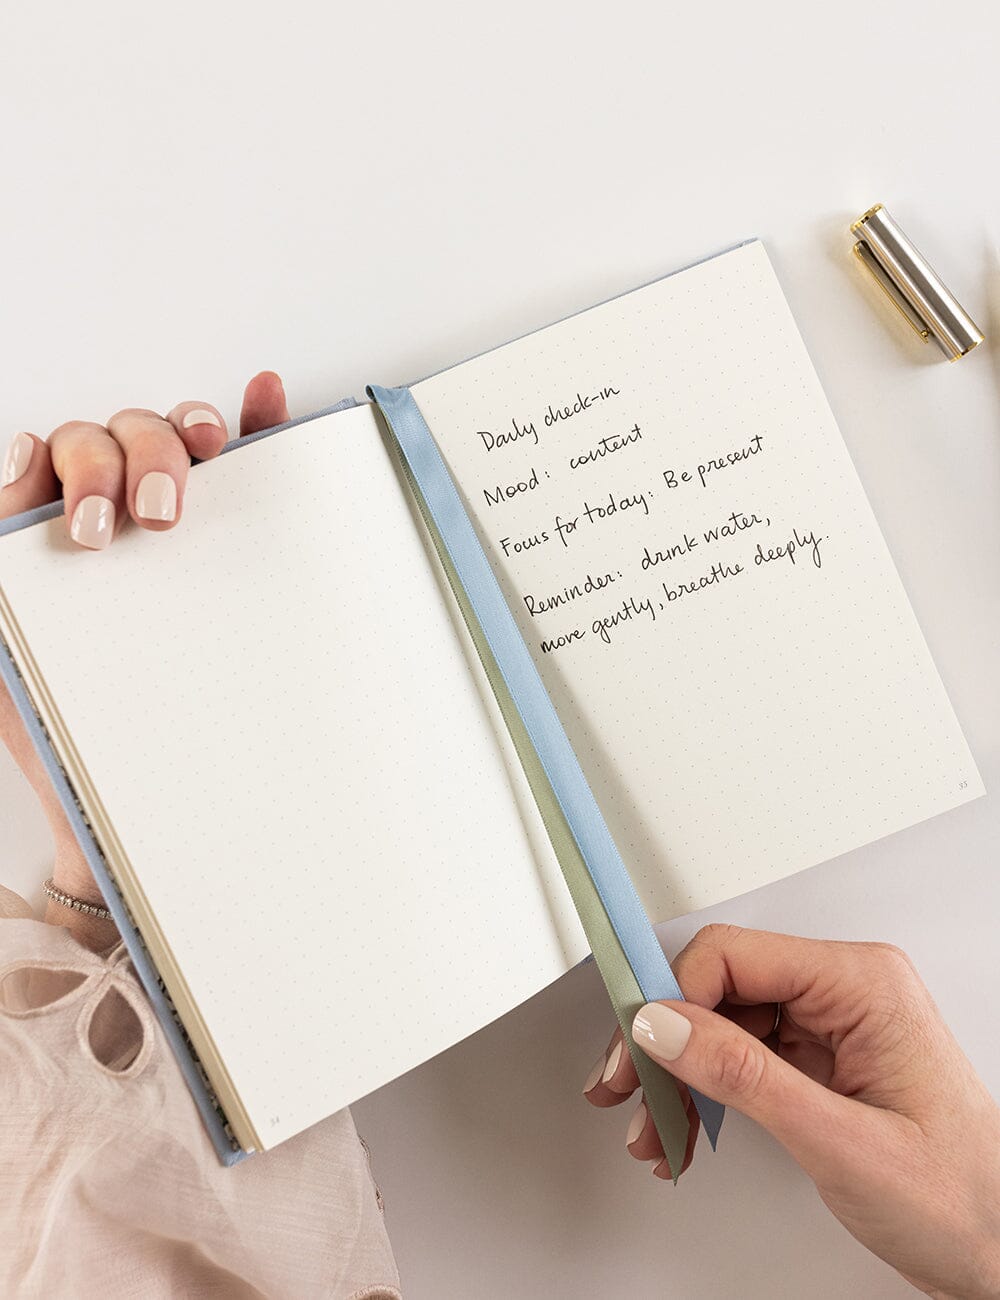 Daily check-in
Mood: content
Focus for today: Be present
Reminder: drink water,
move gently, breathe deeply.
34
35